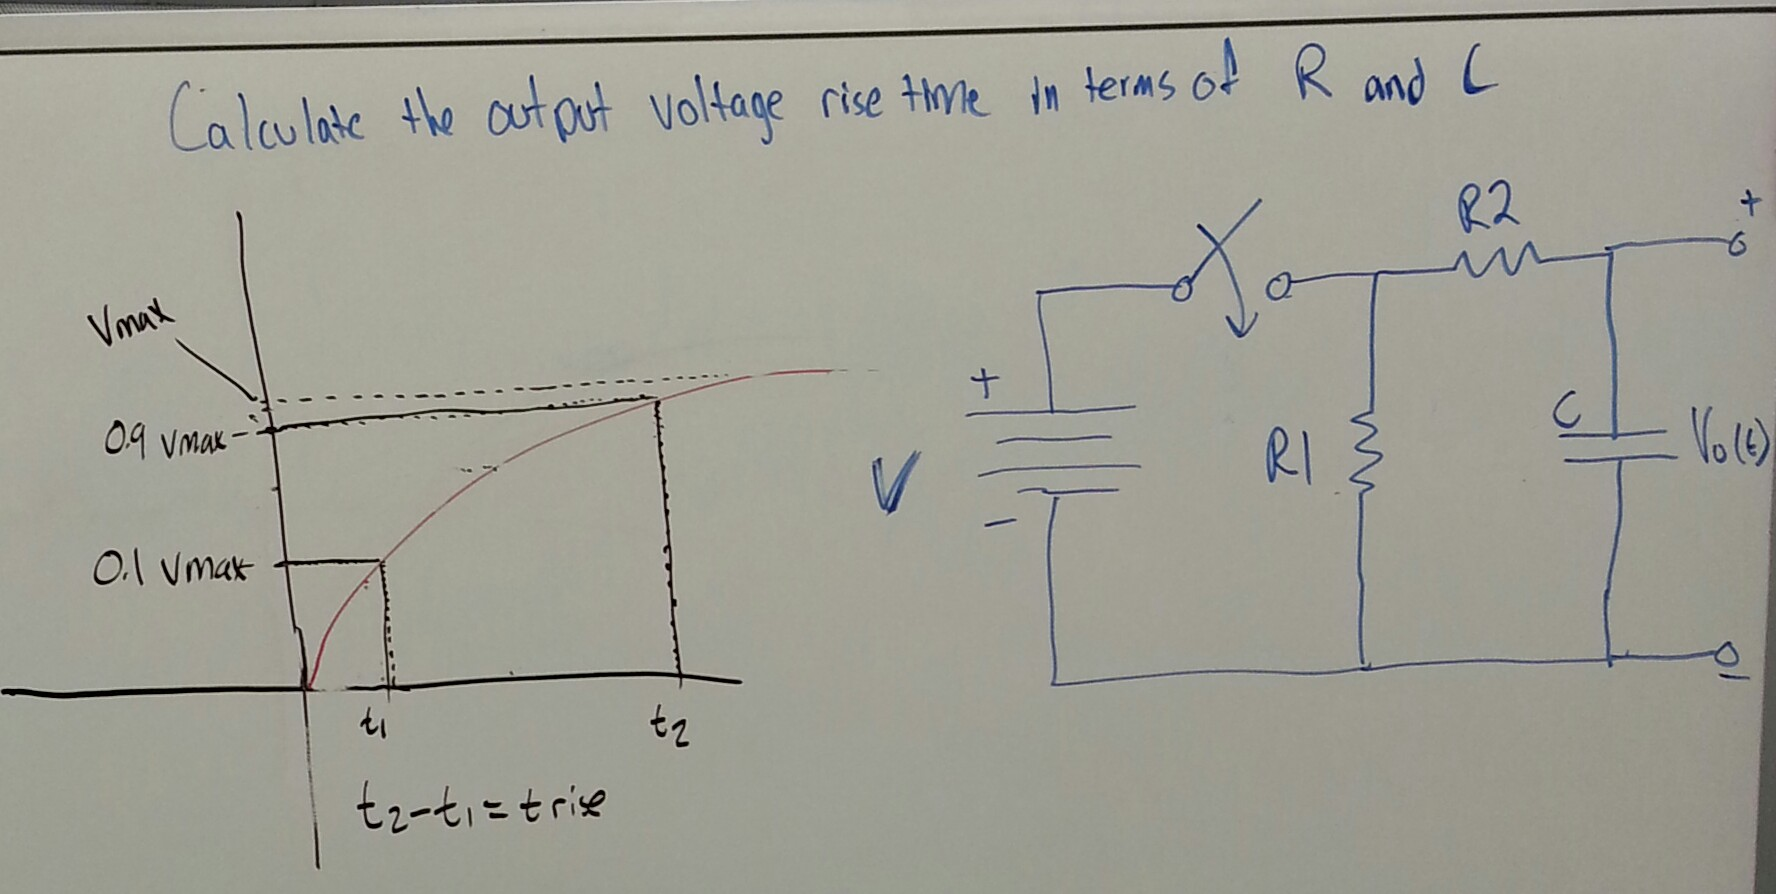 Calculate the output voltage rise time in terms of R and C
Vmax
0.9 Vmax
0.1 Vmax
t1
t2
t2-t1=trise
R2
+
+
V
-
R1
C
Vo(t)
-